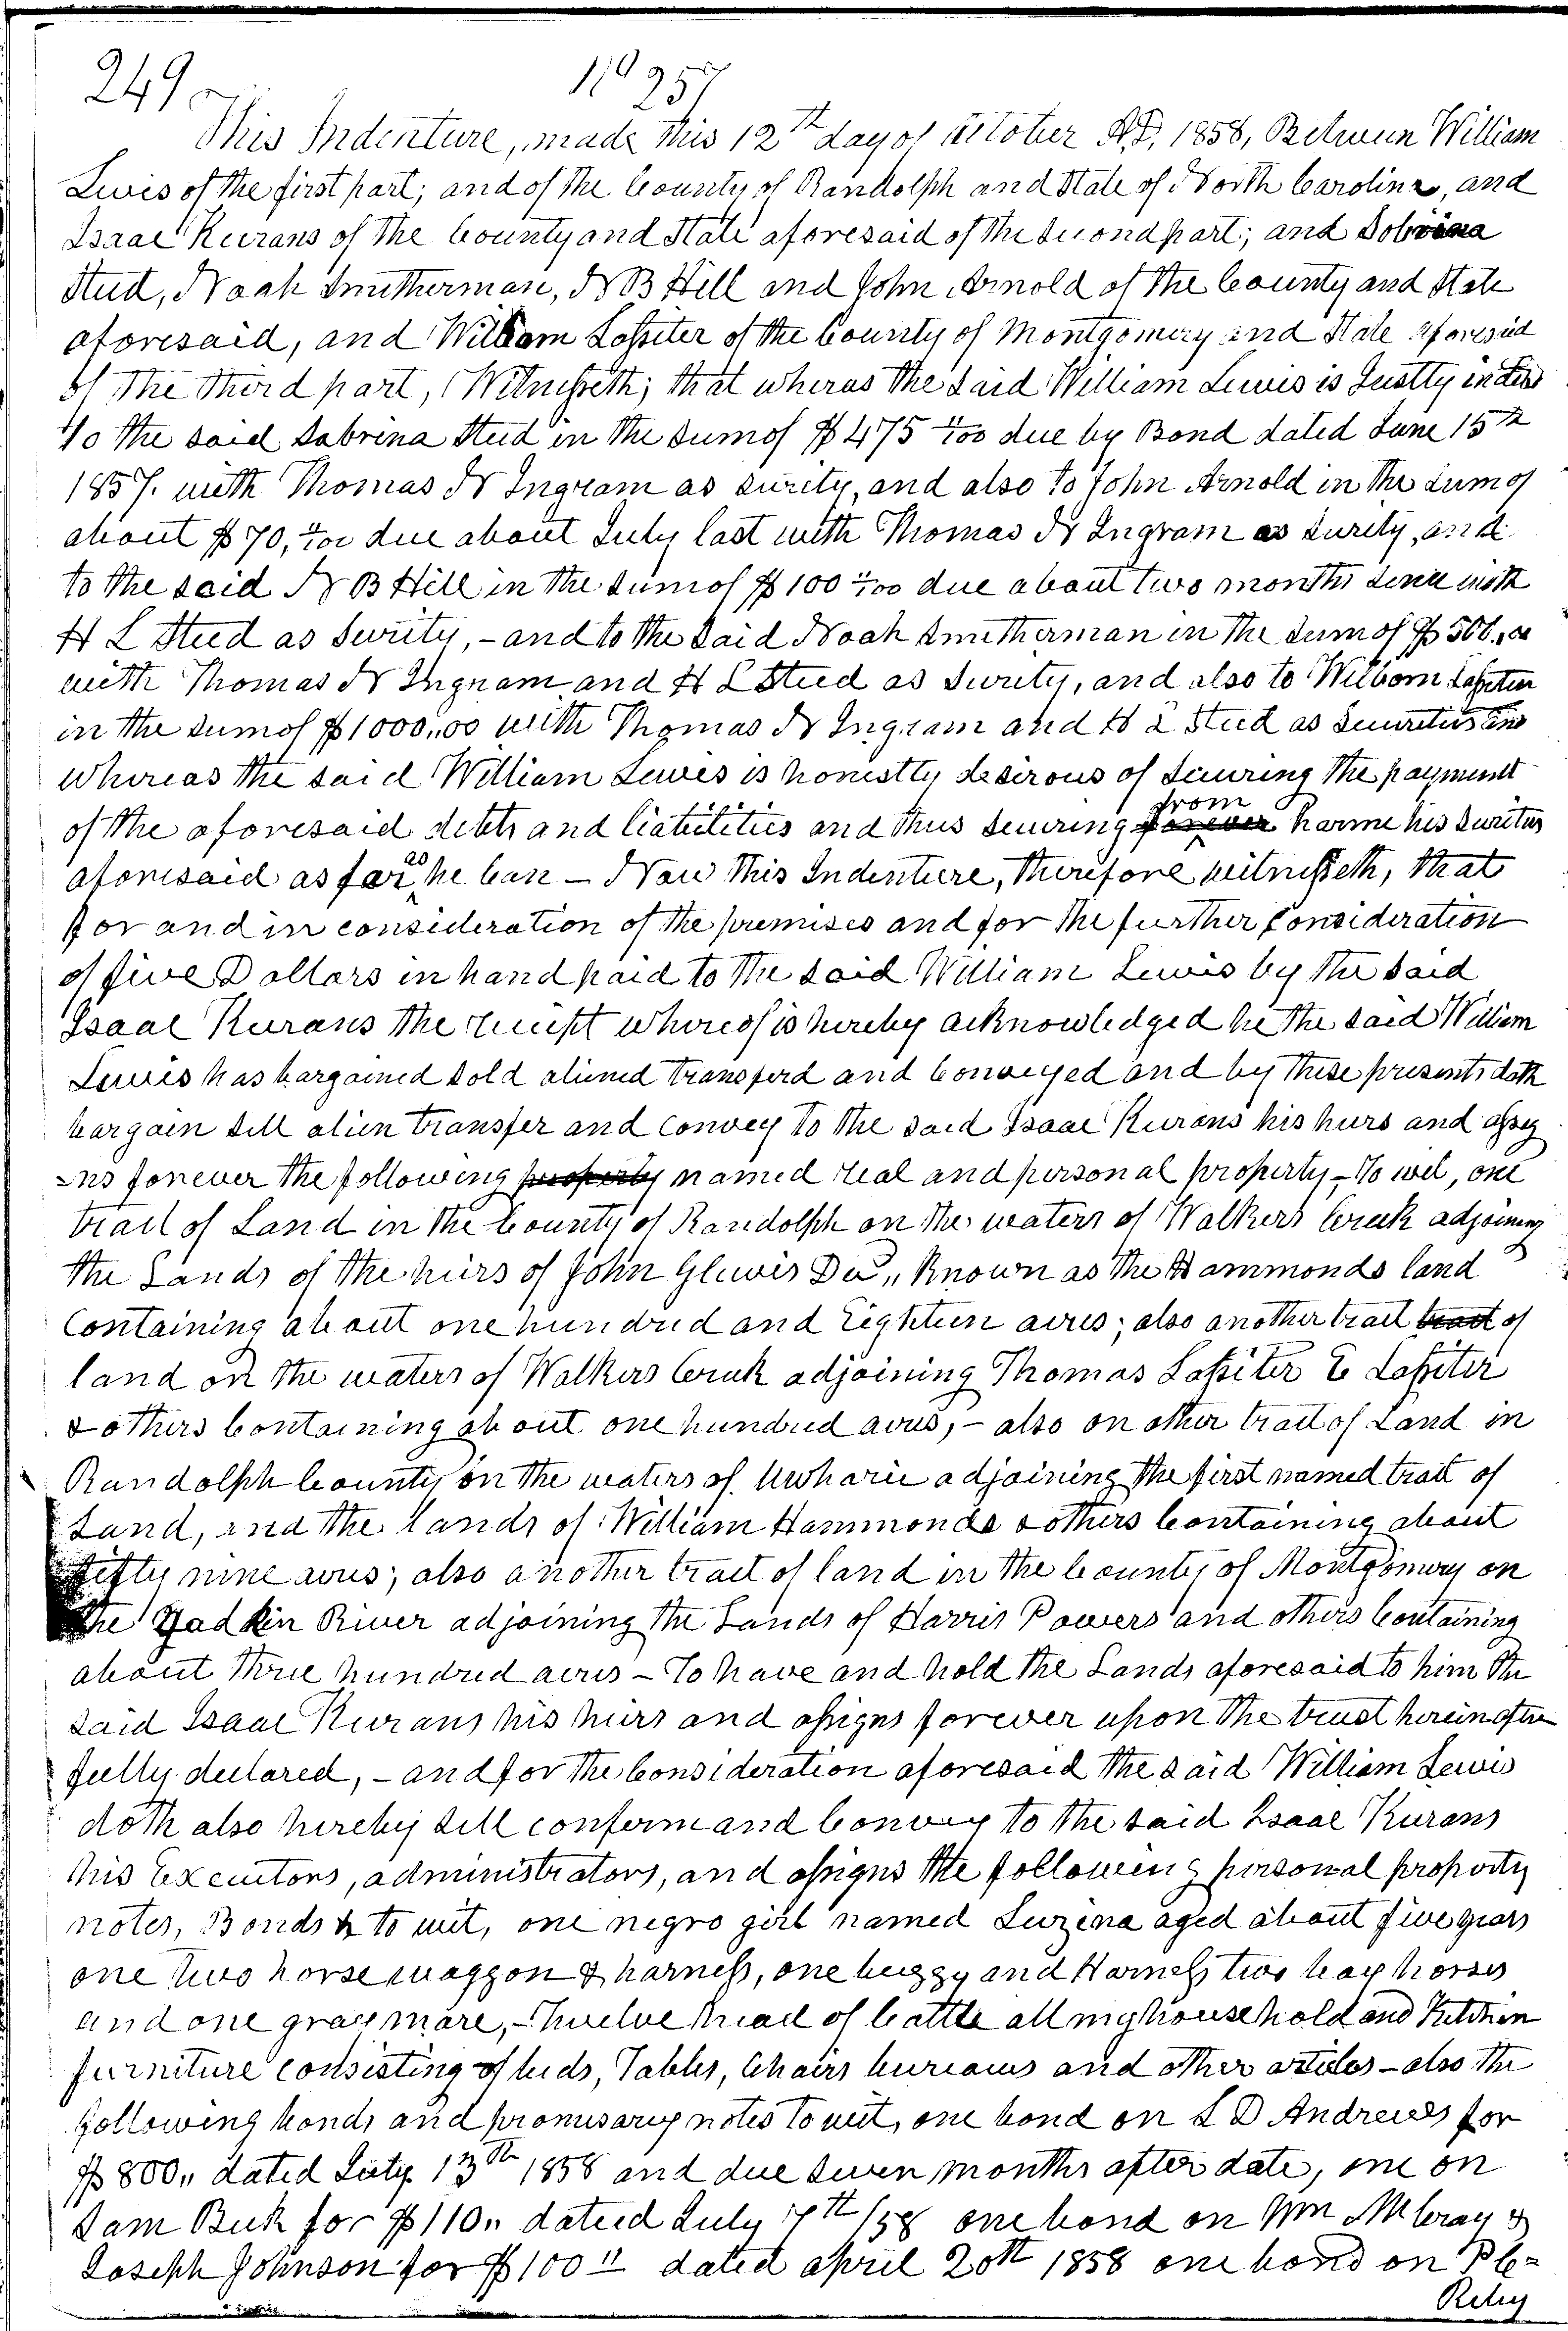 249
No 257
This Indenture, made this 12th day of October A.D, 1858, Between William
Lewis of the first part; and of the County of Randolph and State of North Carolina, and
Isaac Kearans of the County and State aforesaid of the Second part; and
Steed, Noah Smitherman, N B Hill and John Arnold of the County and State
aforesaid, and William Lassiter of the County of Montgomery and State aforesaid
of the third part, Witnesseth; that wheras the said William Lewis is Justty
to the said Sabrina Steed in the sum of $475 00/100 due by Bond dated June 15th
1857. with Thomas N Ingram as surety, and also to John Arnold in the sum of
about $70, 00/100 due about July last with Thomas N Ingram as surety, and
to the said N B Hill in the sum of $100 00/100 due about two months since with
H L Steed as Surity, - and to the said Noah Smitherman in the sum of
with Thomas N Ingram and H L Steed as Surety, and also to Lassiter
in the sum of $1000,.00 with Thomas N Ingram and H L Steed as Secureties and
whereas the said William Lewis is honestly desirous of securing the payment
of the aforesaid debts and liabilities and thus securing from harme his Sureties
aforesaid as far as he Can - Now this Indenture, therefore witnesseth, that
for and in consideration of the premises and for the further Consideration
of five Dollars in hand paid to the said William Lewis by the said
Isaac Kearans the receipt whereof is hereby acknowledged he the said William
Lewis has bargained sold aliened transferd and Conveyed and by these presents doth
bargain sell alien transfer and convey to the said Isaac Kearans his heirs and assig
=ns forever the following property named real and personal property - To wit, one
tract of Land in the County of Randolph on the waters of Walkers Creek adjoining
the Lands of the heirs of John Glewis Dec,, Known as the Hammonds land
Containing about one hundred and Eighteen acres; also another tract tract of
land on the waters of Walkers Creek adjoining Thomas Lassiter E Lassiter
& others Containing about one hundred acres, - also on other tract of Land in
Randolph County on the waters of Uwharie adjoining the first named tract of
Land, and the lands of William Hammonds & others Containing about
fifty nine acres; also another tract of land in the County of Montgomery on
the Yadkin River adjoining the Lands of Harris Powers and others Containing
about three hundred acres - To have and hold the Lands aforesaid to him the
said Isaac Kearans his heirs and assigns forever upon the trust hereinafter
fully declared, - and for the Consideration aforesaid the said William Lewis
doth also hereby sell conferm and Convey to the said Isaac Kearans
his Executors, administrators, and assigns the following personal property
notes, Bonds & to wit, one negro girl named Luzena aged about five years
one two horse waggon & harness, one buggy and Harness two bay horses
and one gray mare, - Twelve head of Cattle all my household and Kitchen
furniture consisting of beds, Tables, Chairs bureaus and other articles - also the
following bonds and promisary notes to wit, one bond on L D Andrews for
$800,, dated July 13th 1858 and due seven months after date, one on
Sam Beck for $110,, dateed July 7th/58 one bond on Wm McCray &
Joseph Johnson for $100" dated april 20th 1858 one bond on P C=
Riley